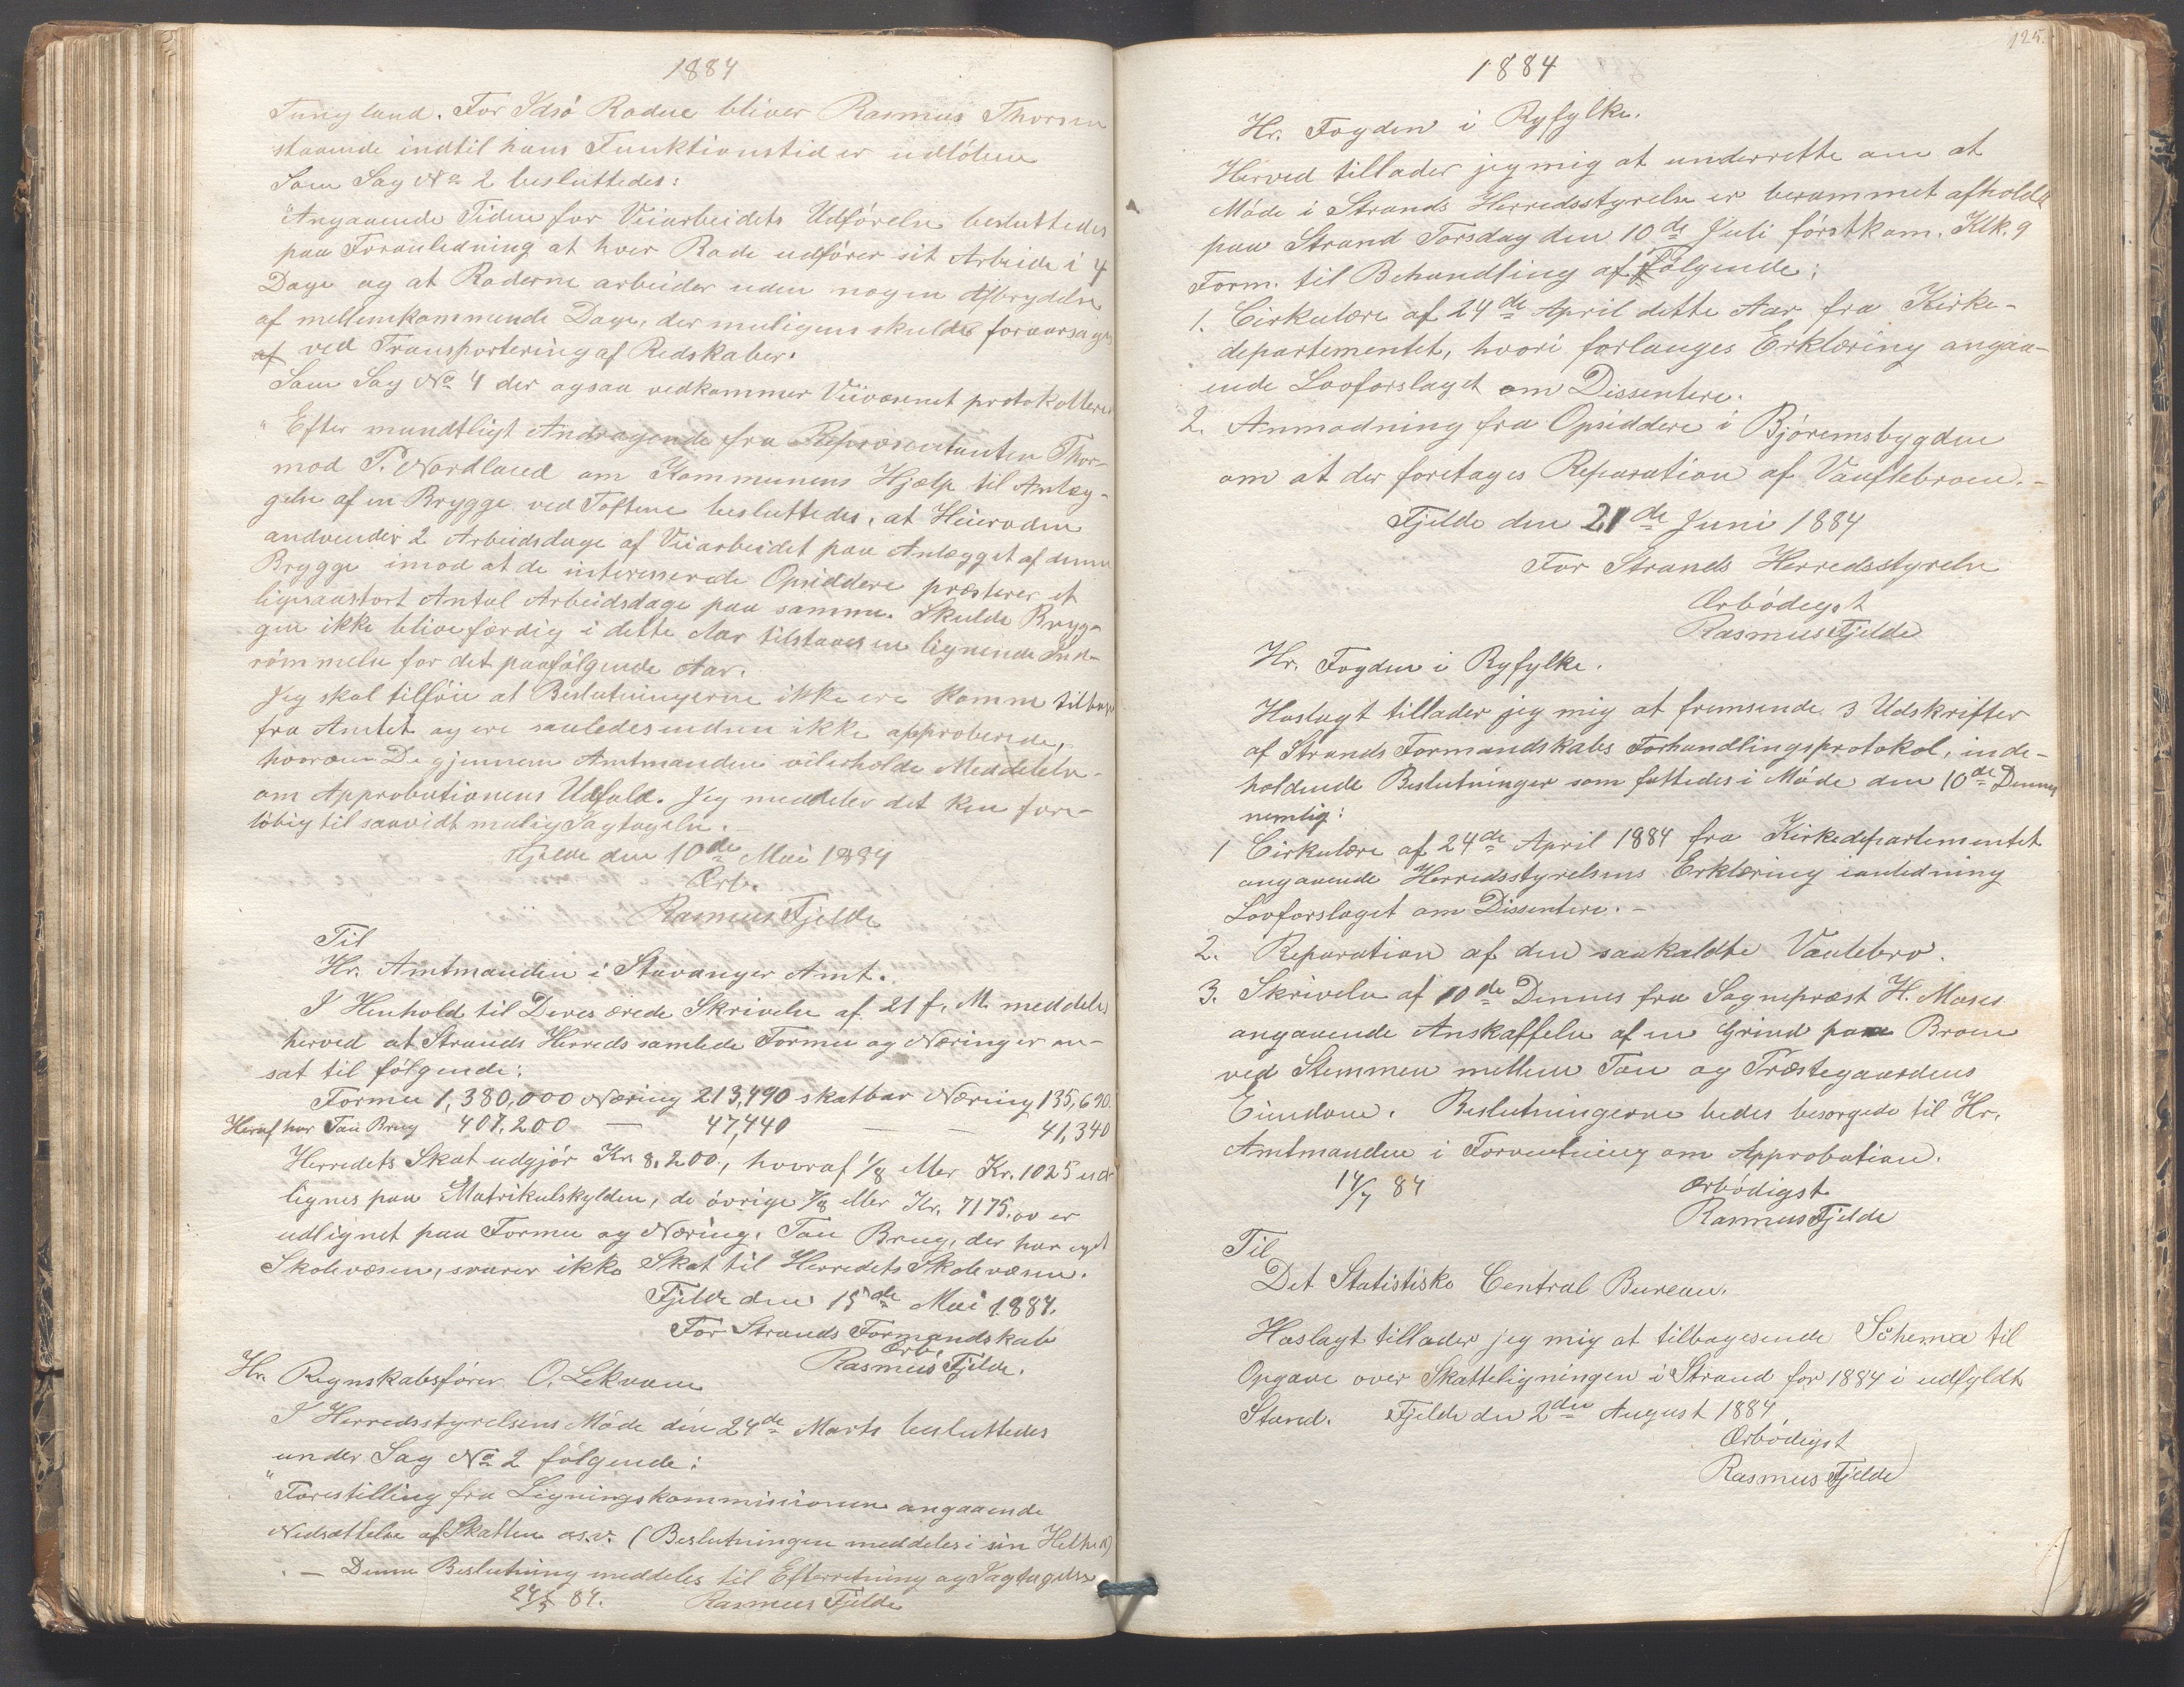 1884
Tungland. For Idsö Rode bliver Rasmus Thorsen
staaende indtil hans Funktionstid er udlöben
Som Sag No 2 besluttedes:
"Angaaende Tiden for Veiarbeidets Udförelse besluttedes
paa Foranledning at hver Rode udförer sit Arbeide i 4
Dage og at Roderne arbeider uden nogen Afbrydelse
af mellemkommende Dage, der muligens skulde foraarsages
af ved Transportering af Redskaber.
Som Sag No 4 der ogsaa vedkommer Veivæsenet protokolleres
"Efter mundtligt Andragende fra Repræsentanten Thor-
mod P. Nordland om Kommunens Hjælp til Anlæg-
gelse af en Brygge ved Toftene besluttedes, at Heieroden
andvender 2 Arbeidsdage af Veiarbeidet paa Anlægget af denne
Brygge imod at de interesserede Opsiddere præsterer et
ligesaastort Antal Arbeidsdage paa samme. Skulde Bryg-
gen ikke blive færdig i dette Aar tilstaaes en lignende Ind-
römmelse for det paafölgende Aar.
Jeg skal tilföie at Beslutningerne ikke ere komne tilbage
fra Amtet og ere saaledes endnu ikke approberede,
hvorom De gjennem Amtmanden vil erholde Meddelelse
om Approbationens Udfald. Jeg meddeler det kun fore-
löbig til saavidt mulig Iagtagelse.
Fjelde den 10de Mai 1884
Ærb.
Rasmus Fjelde
Til
Hr. Amtmanden i Stavanger Amt.
I Henhold til Deres ærede Skrivelse af 21 f. M. meddeles
herved at Strands Herreds samlede Formue og Næring er an-
sat til fölgende:
Formue 1,380,000 Næring 213,490 skatbar Næring 135,690.
Heraf har Tau Brug 407.200 — 47,440 — — 41,340
Herredets Skat udgjör Kr. 8,200., hvoraf 1/8 eller Kr. 1025 ud-
lignes paa Matrikulskylden, de övrige 7/8 eller Kr. 7175.00 er
udlignet paa Formue og Næring. Tau Brug, der har eget
Skolevæsen, svarer ikke Skat til Herredets Skolevæsen.
Fjelde den 15de Mai 1884.
For Strands Formandskab
Ærb.
Rasmus Fjelde.
Hr. Regnskabsförer O. Lekvam
I Herredsstyrelsens Möde den 24de Marts besluttedes
under Sag No 2 fölgende:
"Forestilling fra Ligningskommissionen angaaende
Nedsættelse af Skatten o.s.v. (Beslutningen meddeles i sin Helhed)
. — Denne Beslutning meddeles til Efterretning og Iagtagelse
24/5 84. Rasmus Fjelde
125.
1884
Hr. Fogden i Ryfylke.
Herved tillader jeg mig at underrette om at
Möde i Strands Herredsstyrelse er berammet afholdt
paa Strand Torsdag den 10de Juli förstkom. Klk. 9
Form. til Behandling af Fölgende:
1. Cirkulære af 24de April dette Aar fra Kirke-
departementet, hvori forlanges Erklæring angaa-
ende Lovforslaget om Dissentere.
2. Anmodning fra Opsiddere i Björemsbygden
om at der foretages Reparation af Vauflebroen. -
Fjelde den 21de Juni 1884
For Strands Herredsstyrelse
Ærbödigst
Rasmus Fjelde
Hr. Fogden i Ryfylke.
Hoslagt tillader jeg mig at fremsende 3 Udskrifter
af Strands Formandskabs Forhandlingsprotokol, inde-
holdende Beslutninger som fattedes i Möde den 10de Dennes
nemlig:
1 Cirkulære af 24de April 1884 fra Kirkedepartementet
angaaende Herredsstyrelsens Erklæring ianledning
Lovforslaget om Dissentere. -
2. Reparation af den saakaldte Vaulebro.
3. Skrivelse af 10de Dennes fra Sognepræst H. Moses
angaaende Anskaffelse af en Grind paa Broen
ved Stemmen mellem Tau og Præstegaardens
Eiendom. Beslutningerne bedes besorgede til Hr.
Amtmanden i Forventning om Approbation.
14/7 84 Ærbödigst
Rasmus Fjelde
Til
Det Statistiske Central Bureau.
Hoslagt tillader jeg mig at tilbagesende Schema til
Opgave over Skatteligningen i Strand for 1884 i udfyldt
Stand. Fjelde den 2den August 1884
Ærbödigst
Rasmus Fjelde